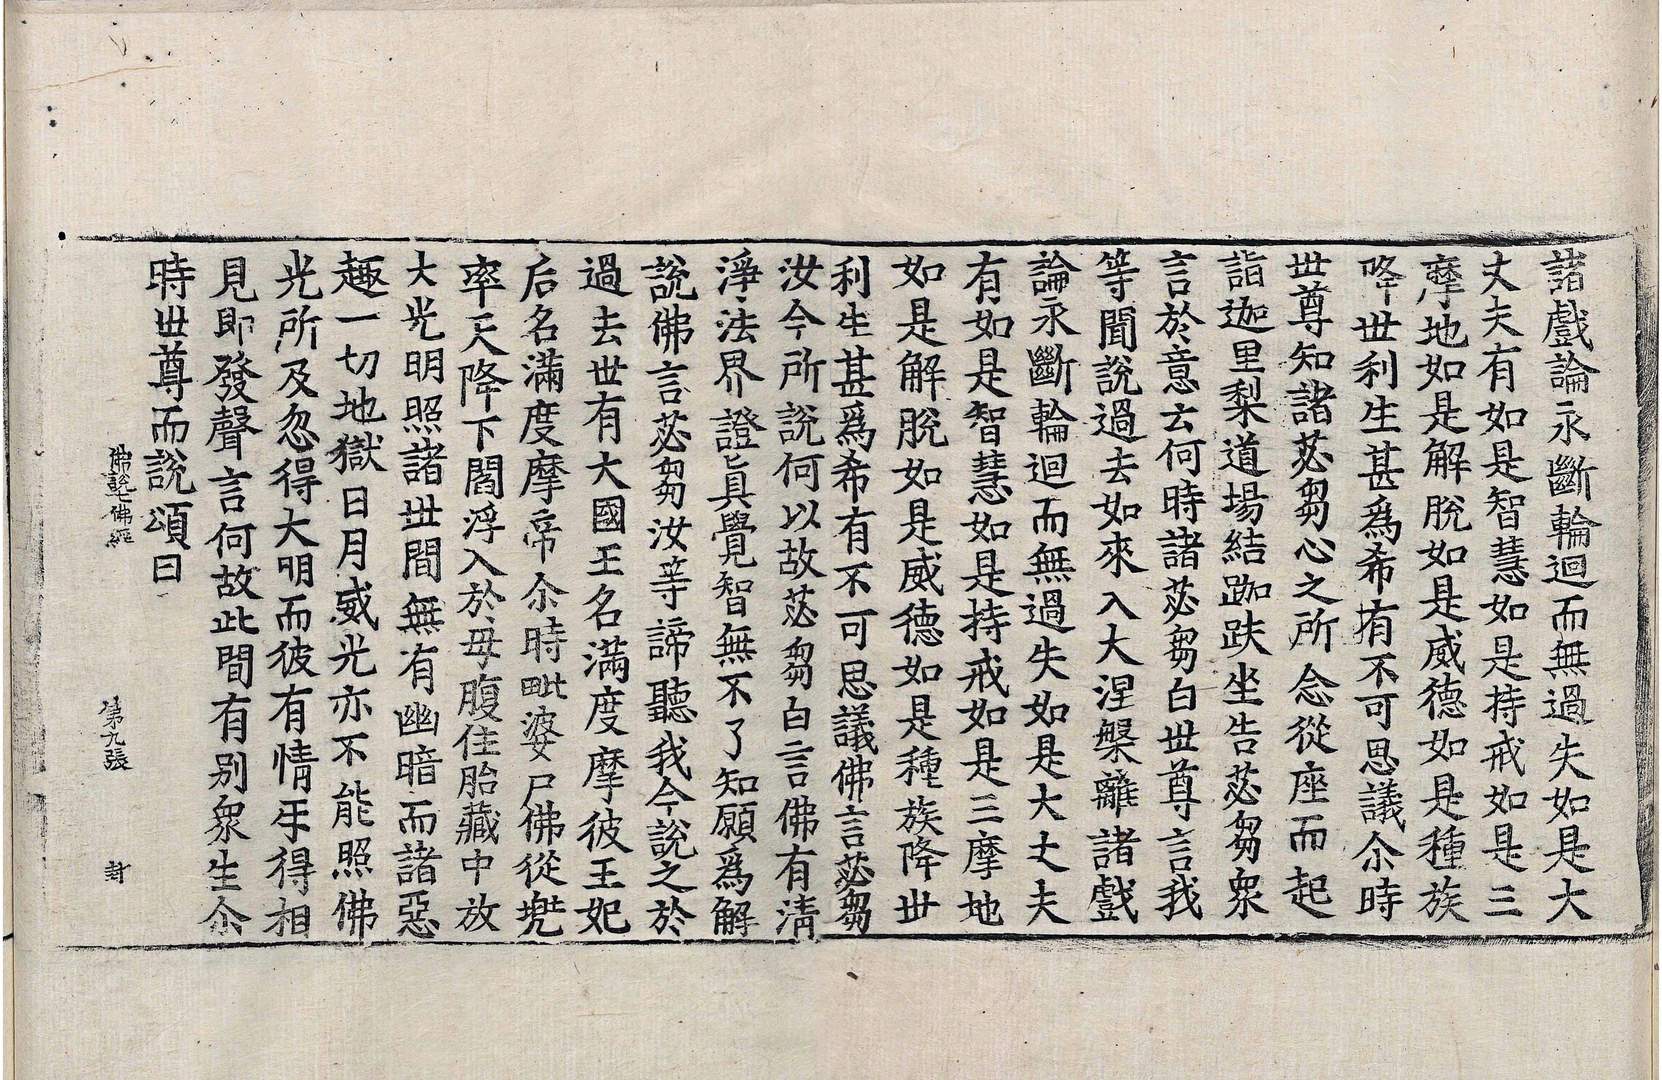 諸戲論永斷輪迴而無過失如是大
丈夫有如是智慧如是持戒如是三
摩地如是解脫如是威德如是種族
降世利生甚爲希有不可思議尒時
世尊知諸苾芻心之所念從座而起
詣迦里梨道場結跏趺坐告苾芻衆
言於意云何時諸苾芻白世尊言我
等聞說過去如來入大涅槃離諸戲
論永斷輪迴而無過失如是大丈夫
有如是智慧如是持戒如是三摩地
如是解脫如是威德如是種族降世
利生甚爲希有不可思議佛言苾芻
汝今所說何以故苾芻白言佛有清
淨法界證眞覺智無不了知願爲解
說佛言苾芻汝等諦聽我今說之於
過去世有大國王名滿度摩彼王妃
后名滿度摩帝尒時毗婆尸佛從兠
率天降下閻浮入於母腹住胎藏中放
大光明照諸世間無有幽暗而諸惡
趣一切地獄日月威光亦不能照佛
光所及忽得大明而彼有情互得相
見即發聲言何故此間有別衆生尒
時世尊而說頌曰
佛說七佛經 第九張 封